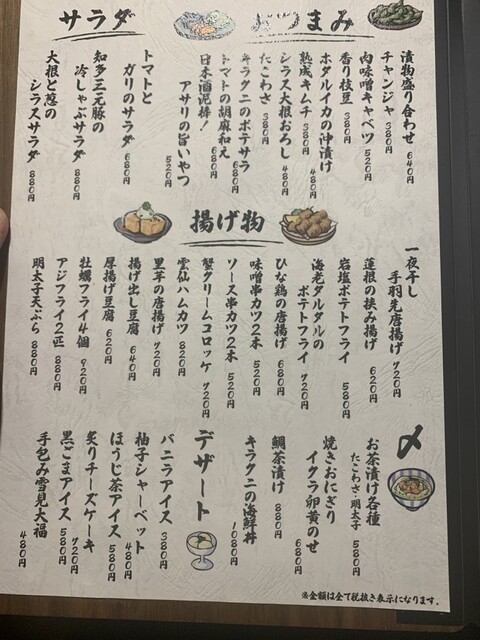 おつまみ
漬物盛り合わせ 640円
チャンジャ 380円
肉味噌キャベツ 520円
香り枝豆 380円
ホタルイカの沖漬け 480円
熟成キムチ 380円
シラス大根おろし 480円
たこわさ 380円
キラクニのポテサラ 680円
トマトの胡麻和え 680円
日本酒泥棒!
アサリの旨いやつ 520円
サラダ
トマトと
ガリのサラダ 680円
知多三元豚の
冷しゃぶサラダ 880円
大根と葱の
シラスサラダ 880円
揚げ物
一夜干し
手羽先唐揚げ 720円
蓮根の挟み揚げ 620円
岩塩ポテトフライ 580円
海老タルタルの
ポテトフライ 720円
ひな鶏の唐揚げ 680円
味噌串カツ2本 520円
ソース串カツ2本 520円
蟹クリームコロッケ 720円
雲仙ハムカツ 820円
里芋の唐揚げ 720円
揚げ出し豆腐 640円
厚揚げ豆腐 620円
牡蠣フライ4個 920円
アジフライ2匹 880円
明太子天ぷら 880円
〆
お茶漬け各種
たこわさ・明太子 580円
焼きおにぎり
イクラ卵黄のせ 680円
鯛茶漬け 880円
キラクニの海鮮丼 1080円
デザート
バニラアイス 380円
柚子シャーベット 480円
ほうじ茶アイス 580円
炙りチーズケーキ 720円
黒ごまアイス 580円
手包み雪見大福 480円
※金額は全て税抜き表示になります。